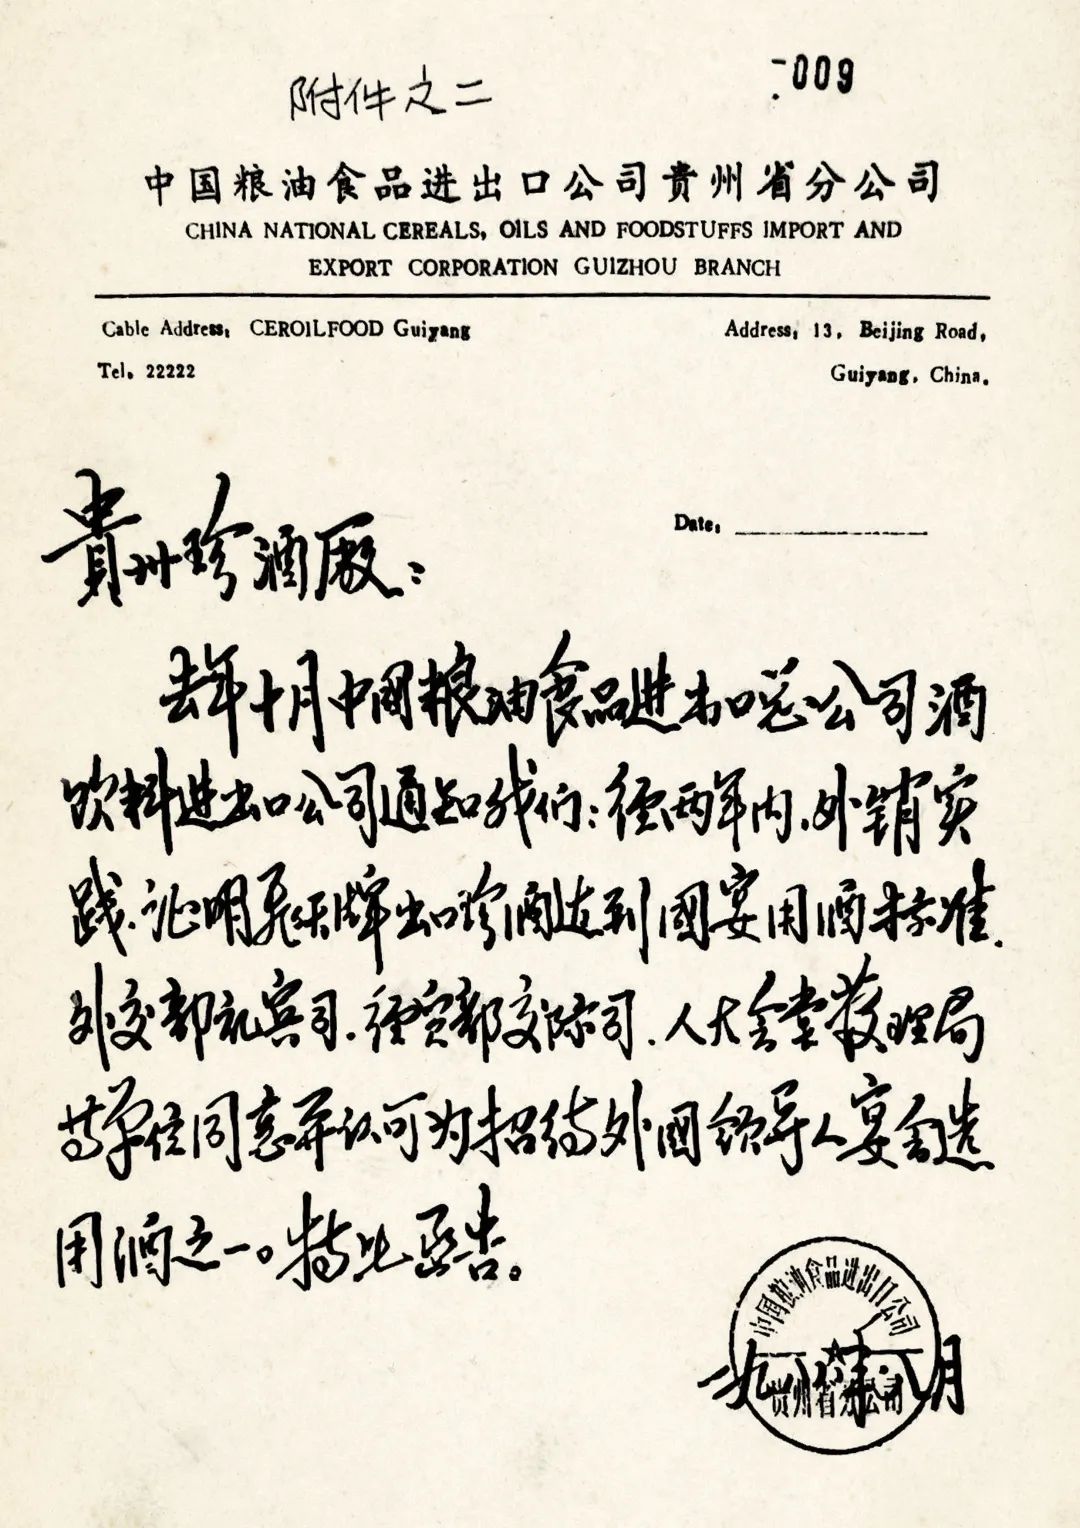 -009
附件之二
中国粮油食品进出口公司贵州省分公司
CHINA NATIONAL CEREALS, OILS AND FOODSTUFFS IMPORT AND
EXPORT CORPORATION GUIZHOU BRANCH
Cable Address: CEROILFOOD Guiyang
Address: 13, Beijing Road,
Tel. 22222
Guiyang, China.
Date:
貴州珍酒厰：
去年十月中國粮油食品进出口总公司酒
饮料进出口公司通知我们：经两年内、外销实
践、证明飛天牌出口珍酒达到國宴用酒标准.
外交部礼宾司、经贸部交际司、人大会堂管理局
等单位同意并认可为招待外國领导人宴会选
用酒之一。特此函告。
中国粮油食品进出口公司
贵州省分公司
一九八八年八月